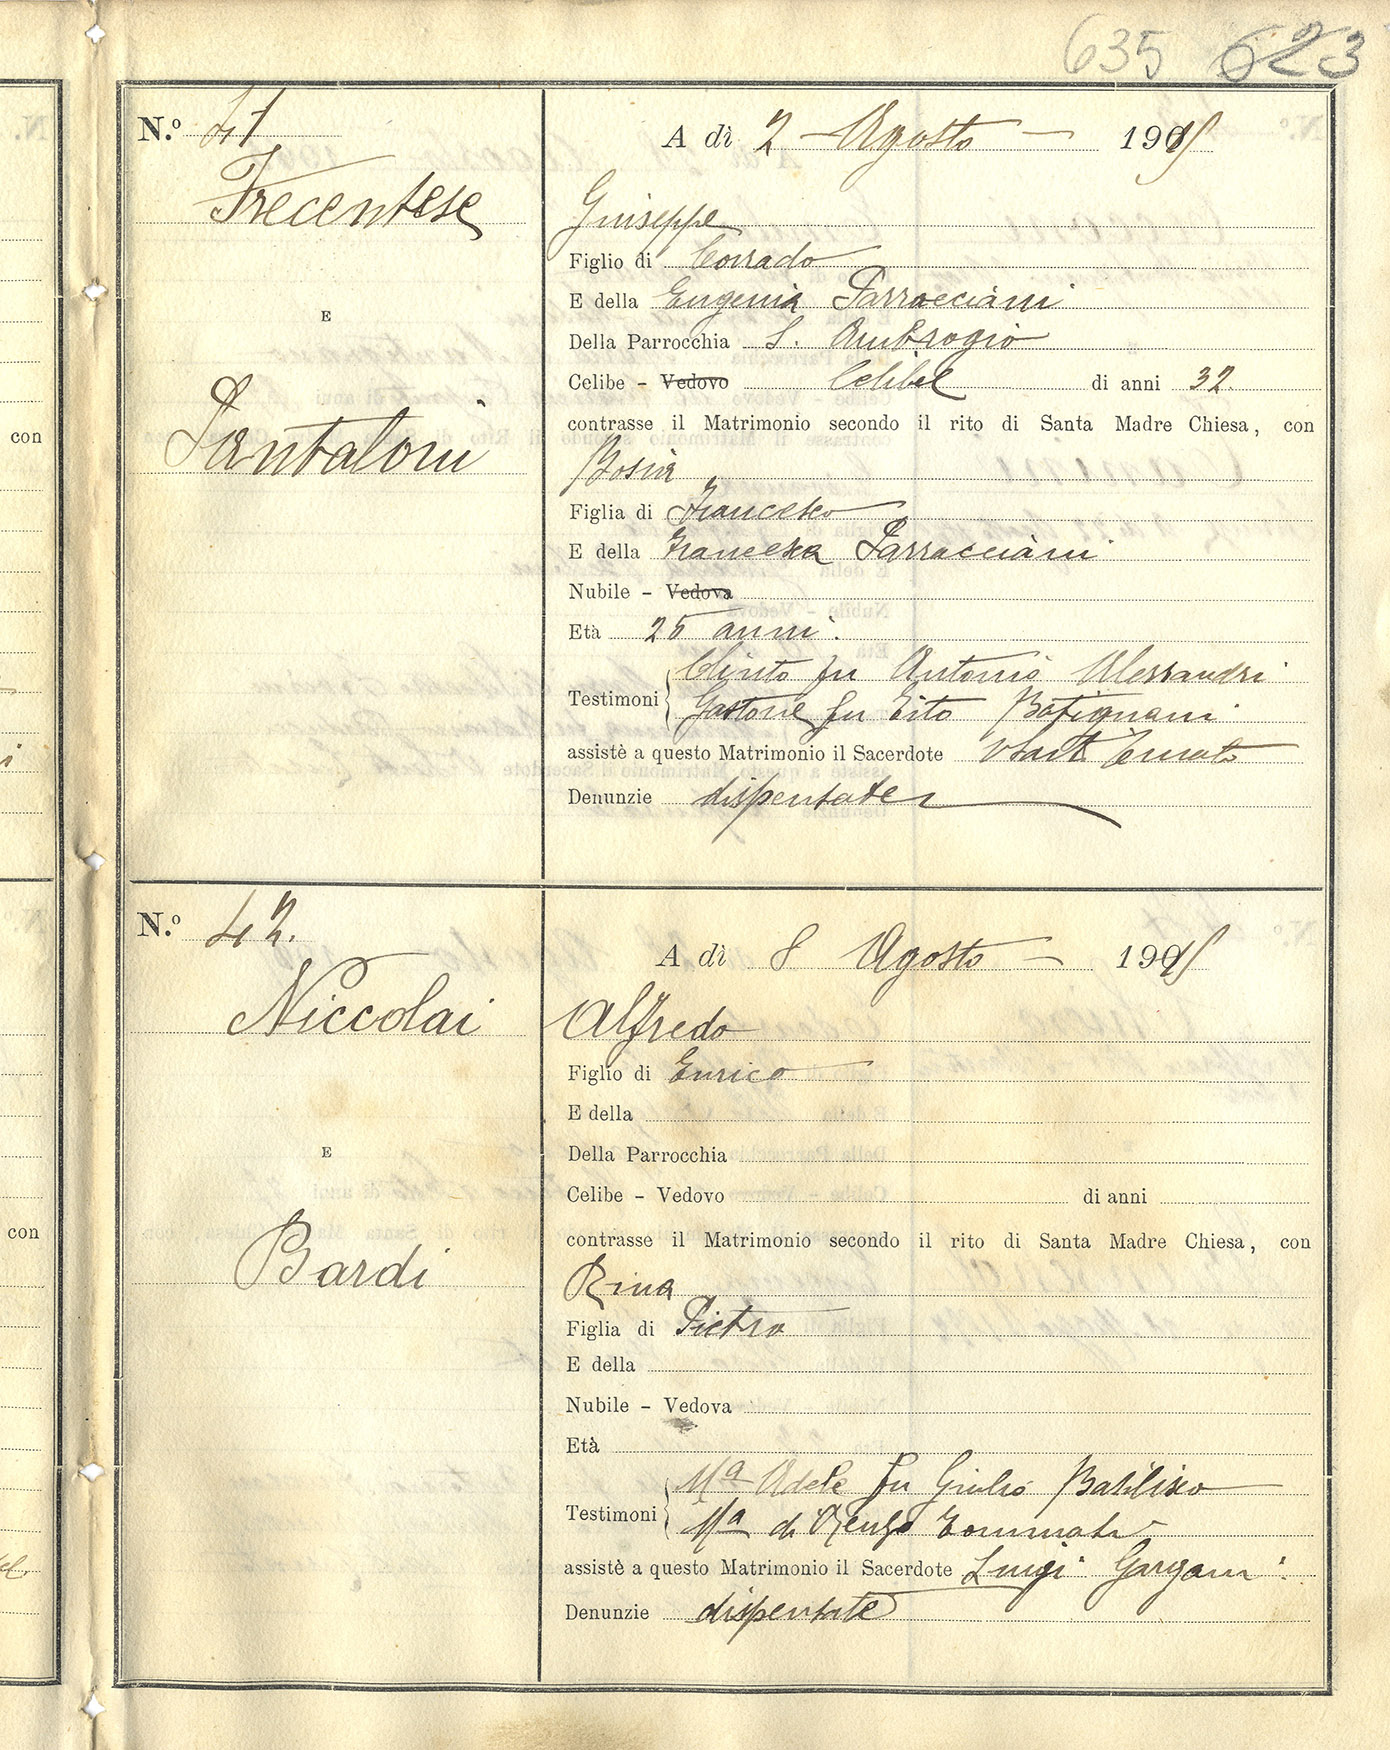 635 623
N.º 41
A dì 2 Agosto 1915
Trecentese
Giuseppe
Figlio di Corrado
E della Eugenia Parracciani
E
Della Parrocchia S. Ambrogio
Celibe - Vedovo Celibe di anni 32.
Pantaloni
contrasse il Matrimonio secondo il rito di Santa Madre Chiesa, con
con
Figlia di Francesco
E della Francesca Parracciani
Nubile - Vedova
Età 25 anni.
Testimoni fu Antonio Alessandri
Gastone fu Tito
assistè a questo Matrimonio il Sacerdote
Denunzie dispensate
N.º 42.
A dì 8 Agosto 1915
Niccolai
Alfredo
Figlio di Enrico
E della
E
Della Parrocchia
Celibe - Vedovo di anni
contrasse il Matrimonio secondo il rito di Santa Madre Chiesa, con
con
Bardi
Rina
Figlia di Pietro
E della
Nubile - Vedova
Età
Testimoni Mª Adele fu Giulio
Mª di
assistè a questo Matrimonio il Sacerdote Luigi Gargani.
Denunzie dispensate